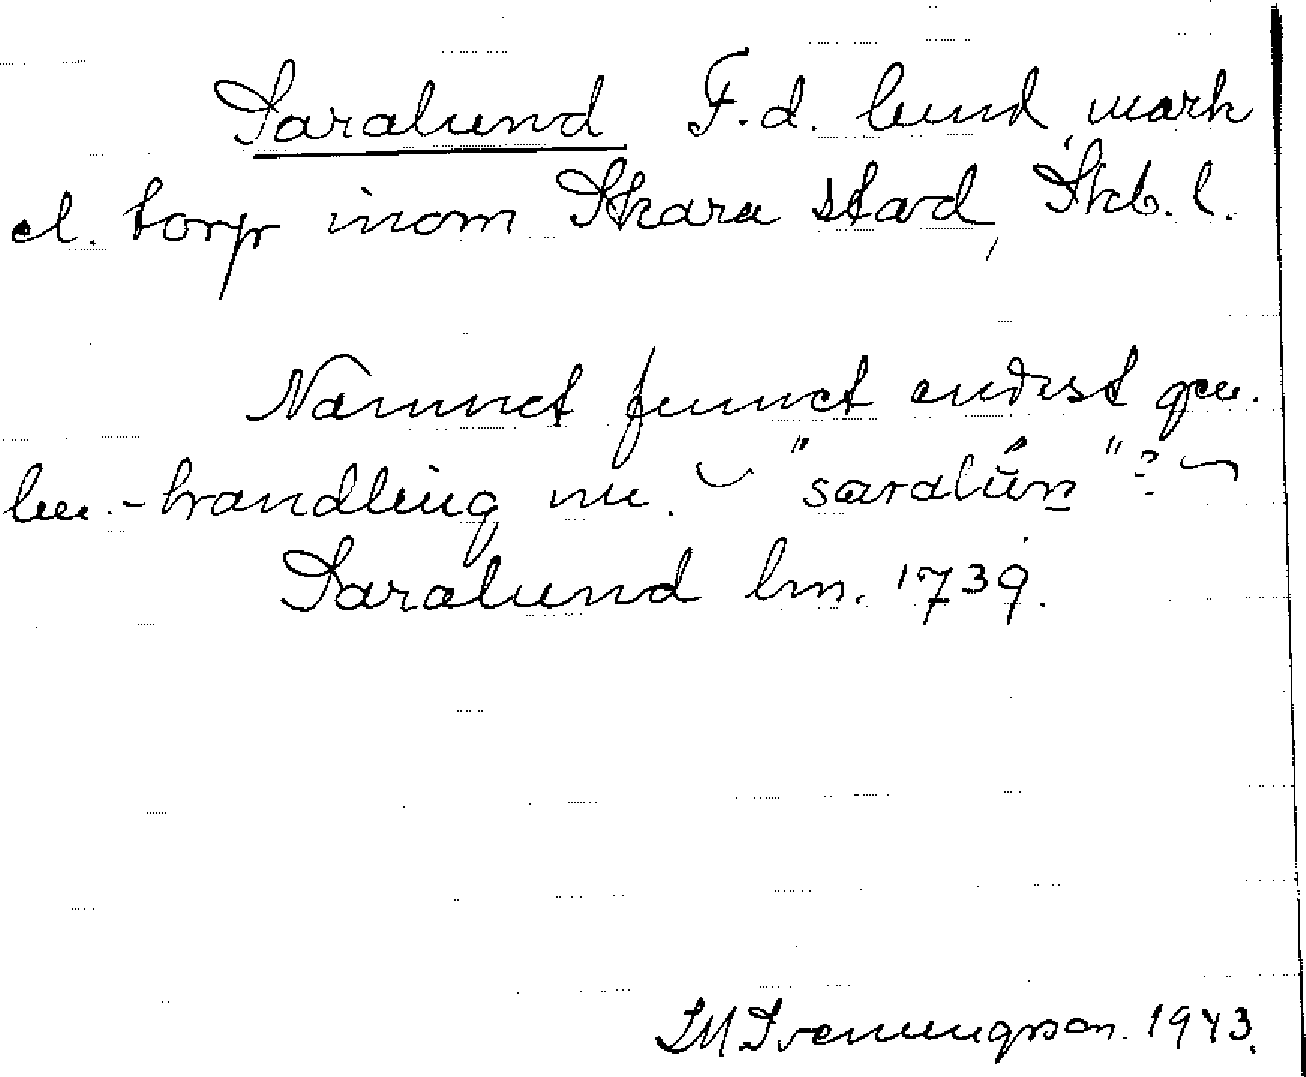 Saralund F.d. lund, mark
el. torp inom Skara stad, Skb. l.
Namnet funnet endast gm.
lm.-handling nu. "saralún"?
Saralund lm. 1739.
Svenungsson. 1943.